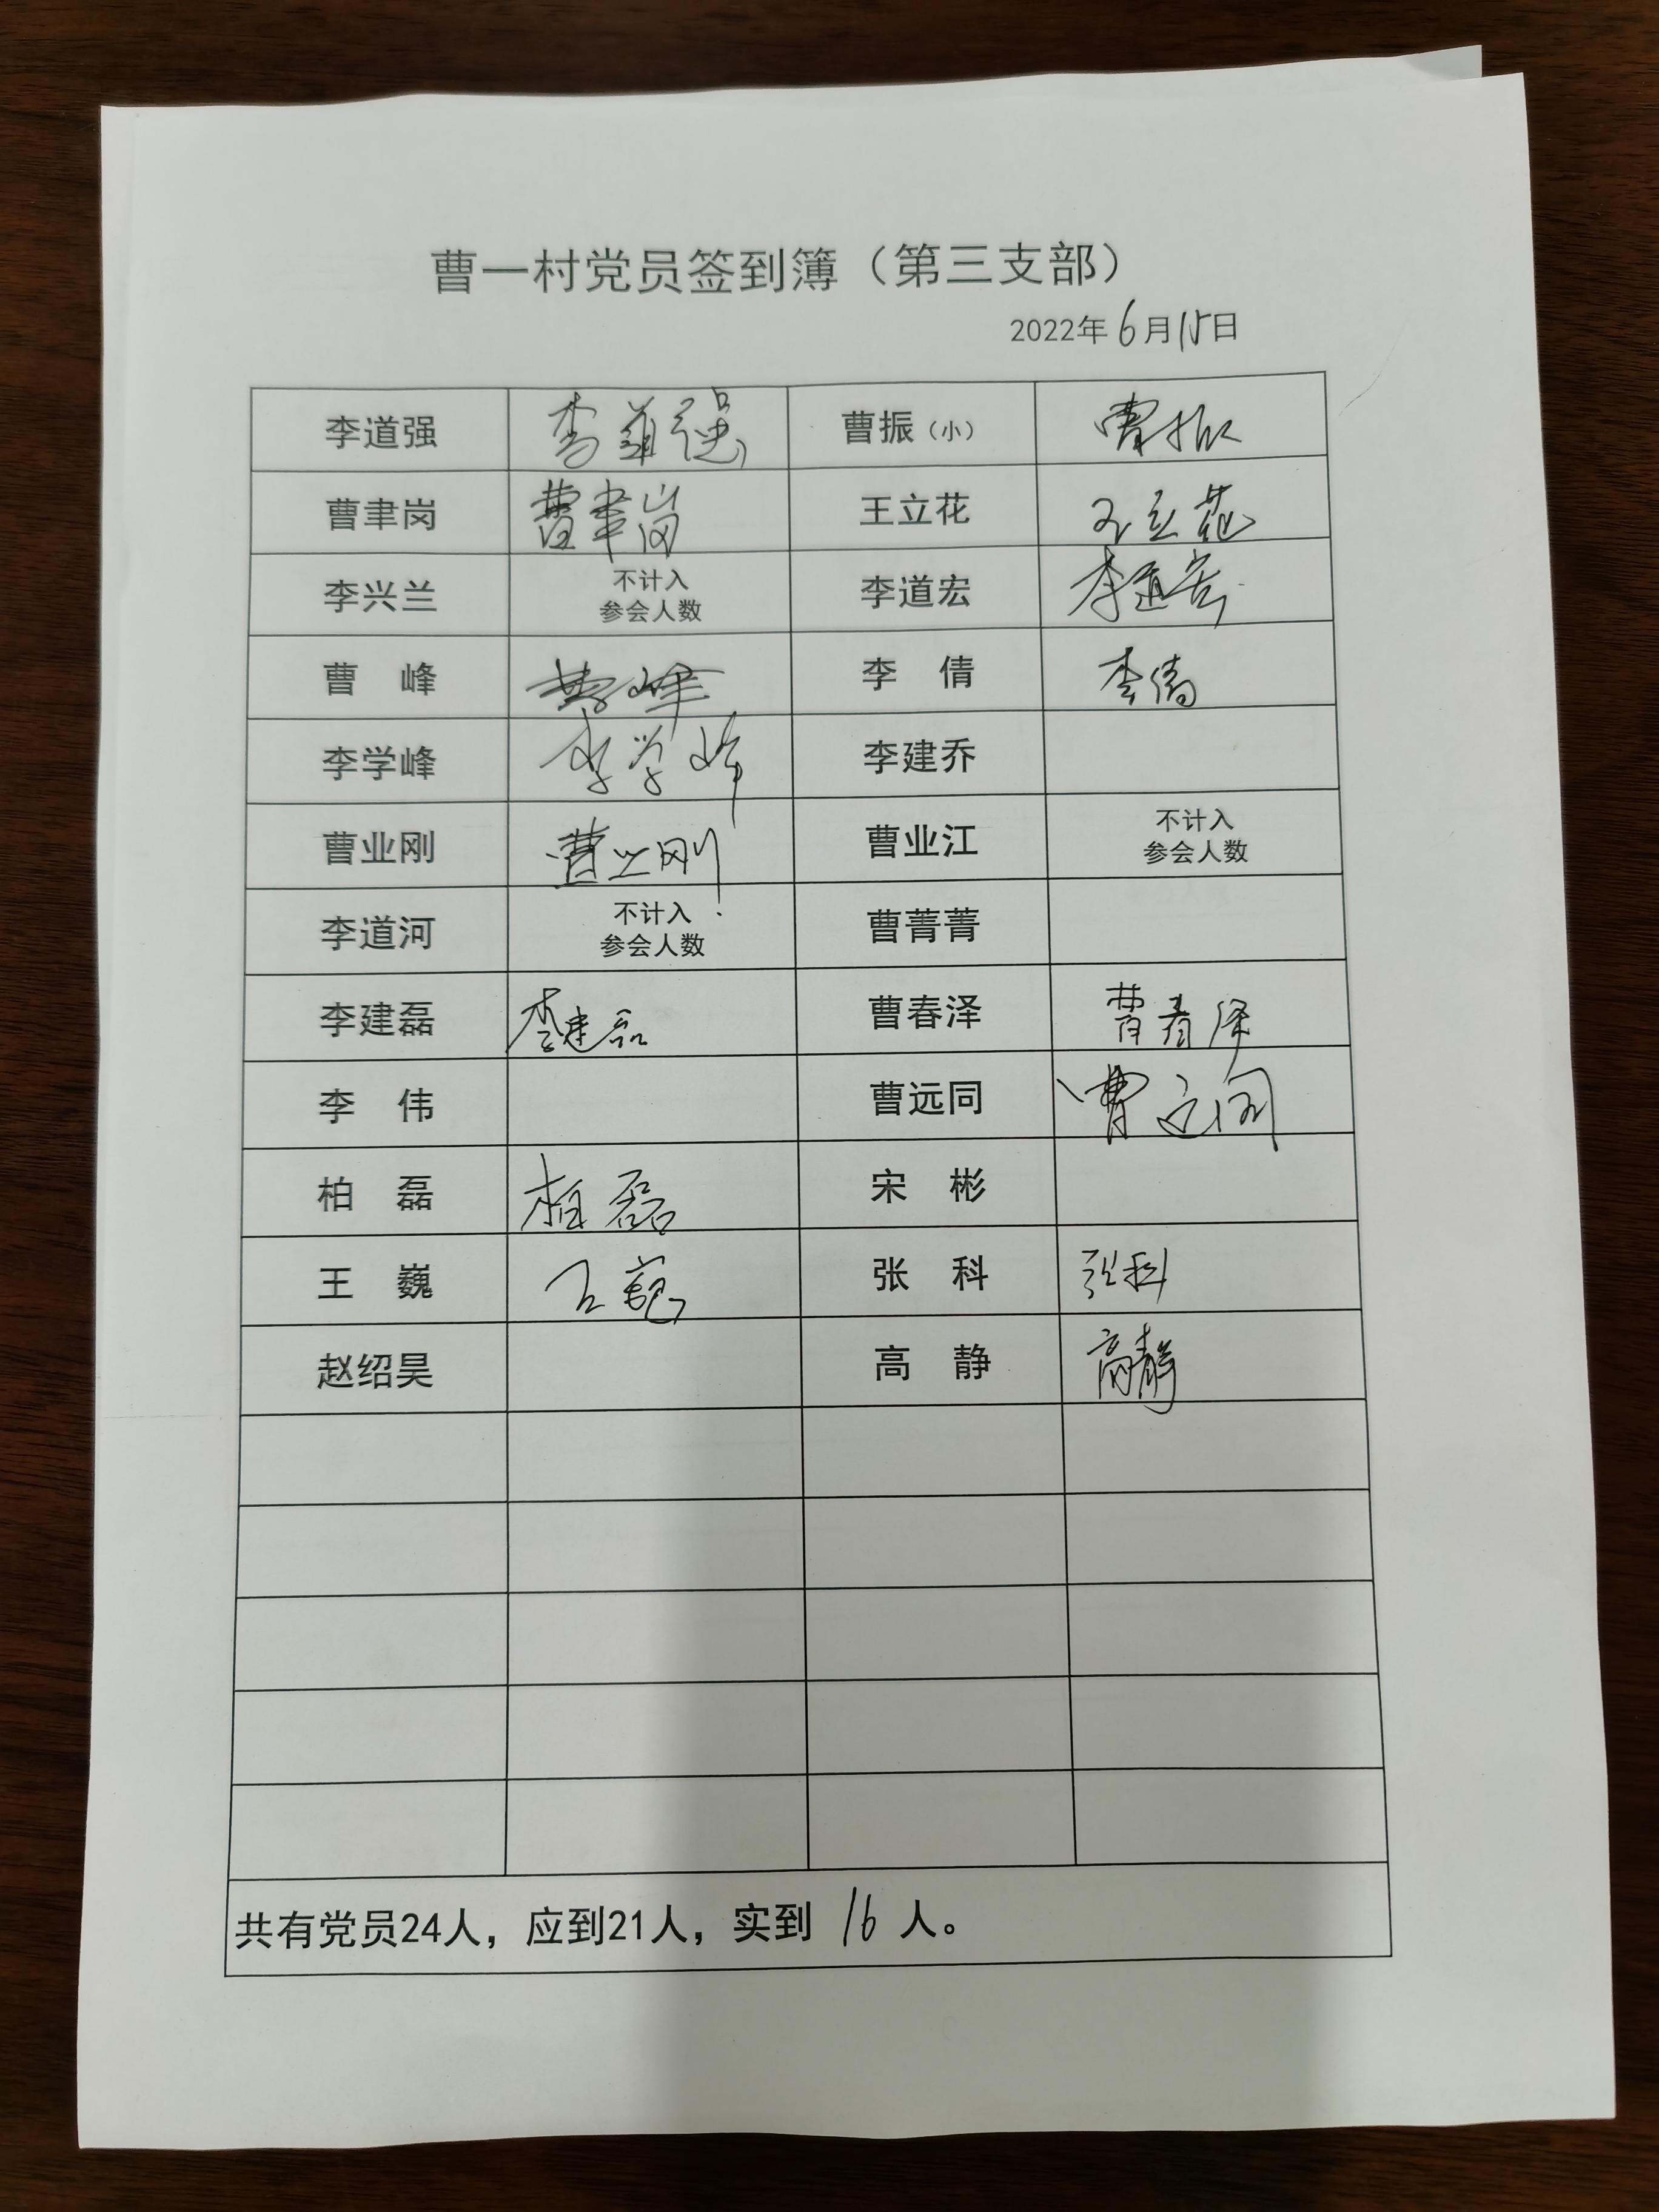 曹一村党员签到簿（第三支部）
2022年6月15日
李道强 李道强 曹振（小） 曹振
曹聿岗 曹聿岗 王立花 王立花
李兴兰 不计入 李道宏 李道宏
参会人数
曹 峰 曹峰 李 倩 李倩
李学峰 李学峰 李建乔
曹业刚 曹业刚 曹业江 不计入
参会人数
李道河 不计入 曹菁菁
参会人数
李建磊 李建磊 曹春泽 曹春泽
李 伟 曹远同 曹远同
柏 磊 柏磊 宋 彬
王 巍 王巍 张 科 张科
赵绍昊 高 静 高静
共有党员24人，应到21人，实到 16 人。